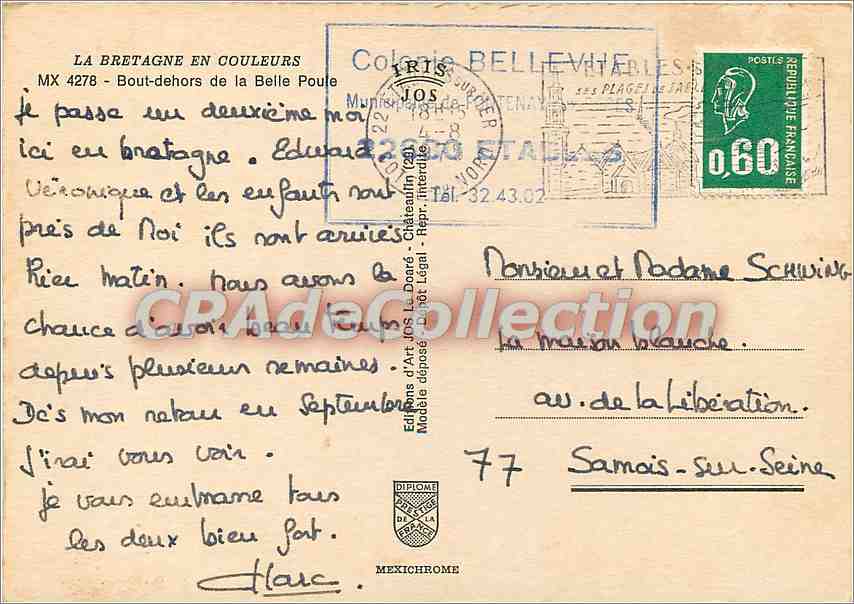 LA BRETAGNE EN COULEURS
MX 4278 - Bout-dehors de la Belle Poule
je passe un deuxième moi
ici en bretagne. Edward,
Véronique et les enfants sont
près de Moi ils sont arrivés
hier matin. Nous avons la
chance d'avoir beau temps
depuis plusieurs semaines.
Dès mon retour en Septembre
j'irai vous voir.
je vous embrasse tous
les deux bien fort.
Marc.
IRIS
JOS
Editions d'Art JOS Le Doaré - Châteaulin (29)
Modèle déposé - Dépôt Légal - Repr. interdite
DIPLOME
PRESTIGE
DE LA
FRANCE
MEXICHROME
Colonie BELLEVUE
Municipale de FONTENAY
22680 ETABLES
Tél. 32.43.02
18H15
4-8
ETABLES-S
SES PLAGES de SABLE
POSTES
REPUBLIQUE FRANÇAISE
0,60
Monsieur et Madame SCHWING
La maison blanche.
av. de la Libération.
77 Samois-sur-Seine
CPAdeCollection